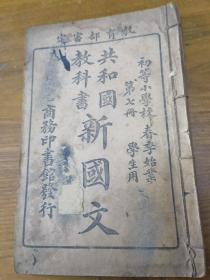 教育部審定
初等小學校春季始業
第七冊
學生用
共和國
教科書
新國文
商務印書館發行